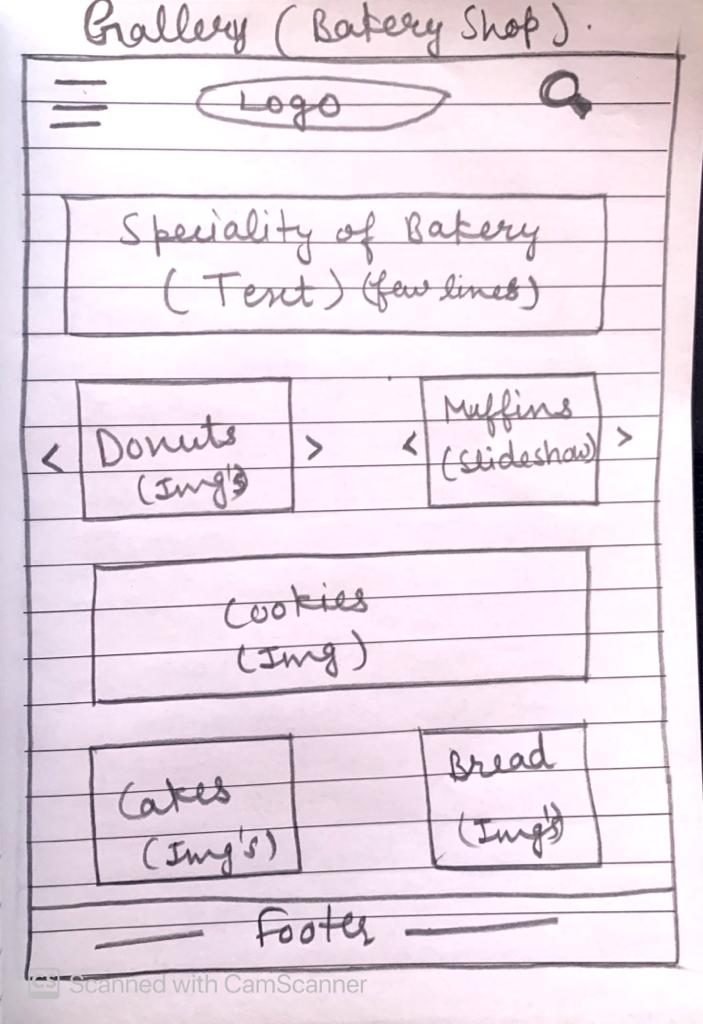 Gallery (Bakery Shop).
Logo
Speciality of Bakery
(Text) (few lines)
< Donuts > < Muffins >
(Img's) (Slideshow)
Cookies
(Img)
Cakes Bread
(Img's) (Img's)
Footer
CS Scanned with CamScanner